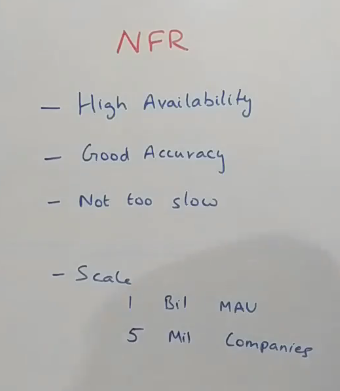 NFR
— High Availability
— Good Accuracy
— Not too slow
— Scale
1 Bil MAU
5 Mil Companies